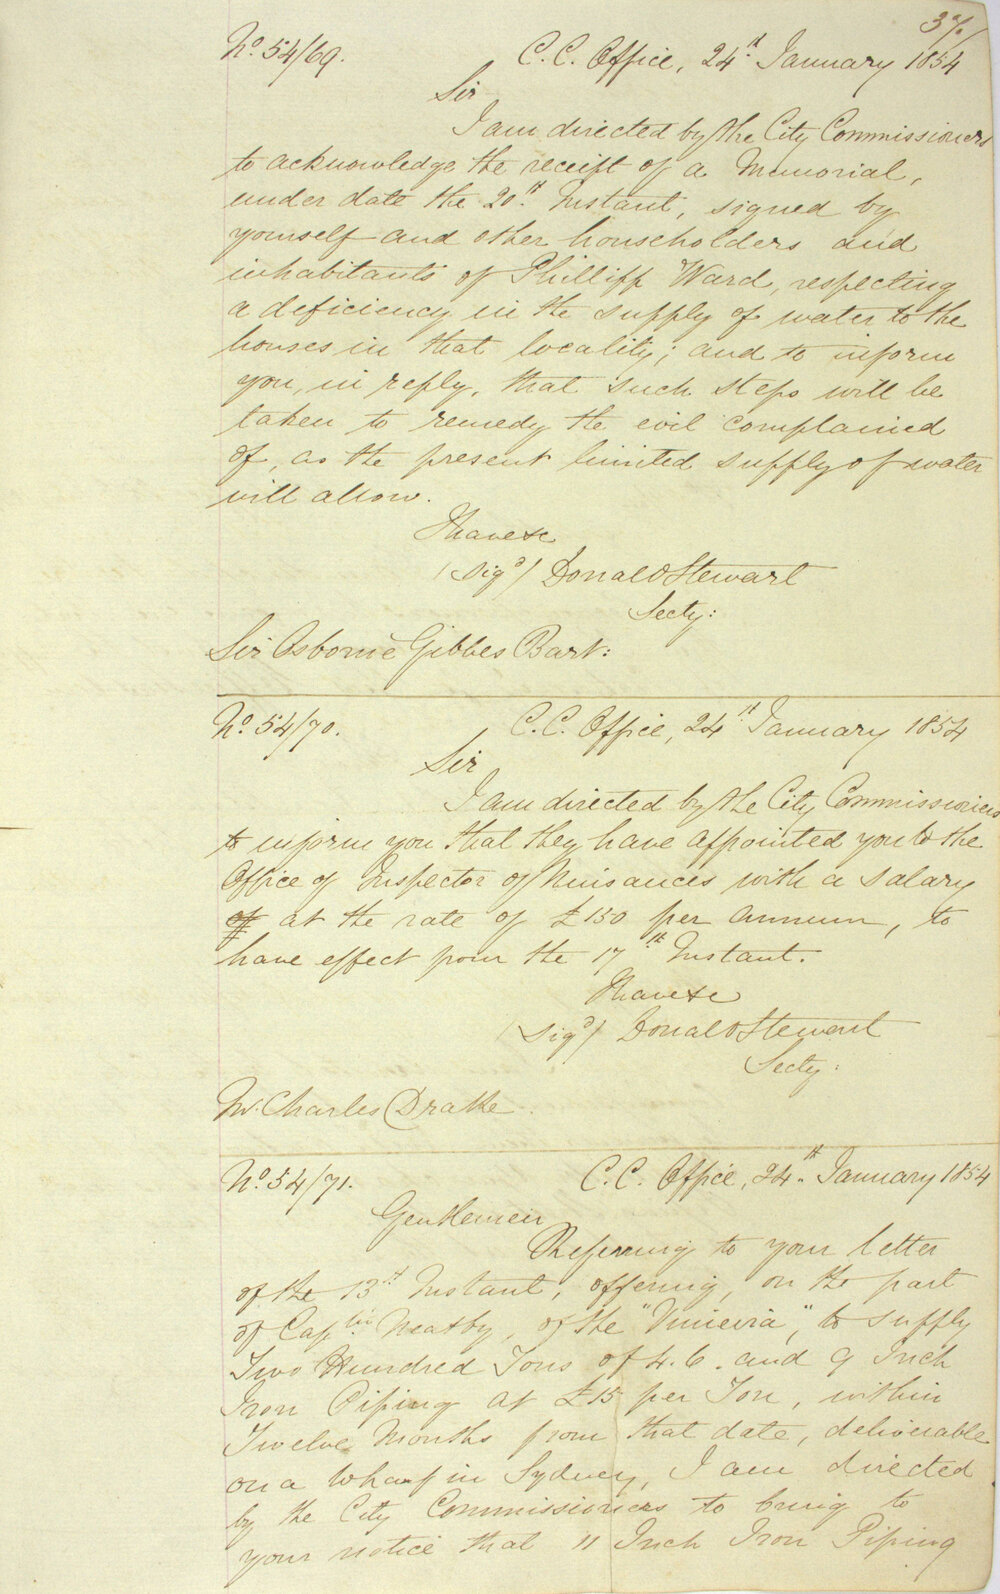 37/
No. 54/69. C.C. Office, 24th January 1854
Sir
I am directed by the City Commissioners
to acknowledge the receipt of a Memorial,
under date the 20th Instant, signed by
yourself and other householders and
inhabitants of Phillip Ward, respecting
a deficiency in the supply of water to the
houses in that locality; and to inform
you, in reply, that such steps will be
taken to remedy the evil complained
of, as the present limited supply of water
will allow.
I have &c
(Sigd) Donald Stewart
Secty:
Sir Osborne Gibbes Bart:
No. 54/70. C.C. Office, 24th January 1854
Sir
I am directed by the City Commissioners
to inform you that they have appointed you to the
Office of Inspector of Nuisances with a salary
of at the rate of £150 per annum, to
have effect from the 17th Instant.
I have &c
(Sigd) Donald Stewart
Secty:
Mr. Charles Drake.
No. 54/71. C.C. Office, 24th January 1854
Gentlemen
Referring to your letter
of the 13th Instant, offering, on the part
of Captn Neatby, of the "Vimeira", to supply
Two Hundred Tons of 4. 6. and 9 Inch
Iron Piping at £15 per Ton, within
Twelve Months from that date, deliverable
on a Wharf in Sydney, I am directed
by the City Commissioners to bring to
your notice that 11 Inch Iron Piping